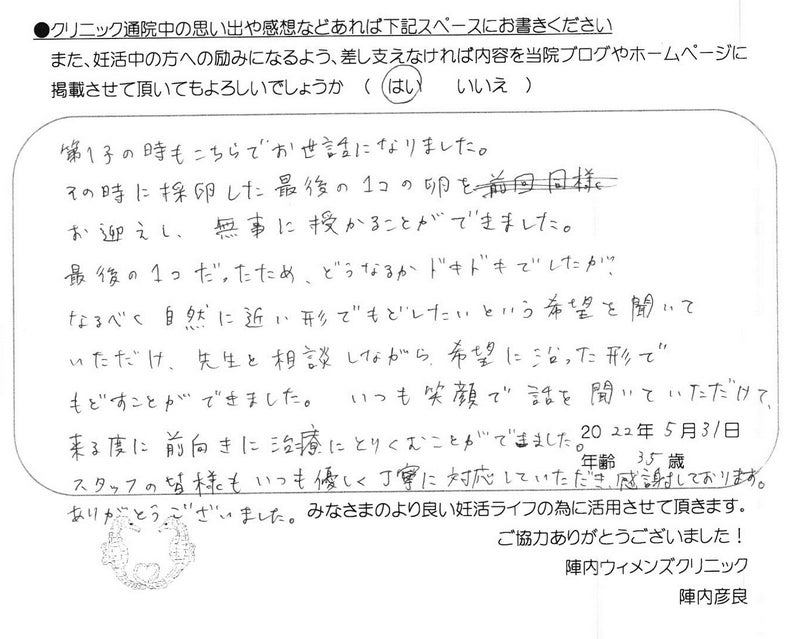 ●クリニック通院中の思い出や感想などあれば下記スペースにお書きください
また、妊活中の方への励みになるよう、差し支えなければ内容を当院ブログやホームページに
掲載させて頂いてもよろしいでしょうか （ はい　　いいえ ）
第1子の時もこちらでお世話になりました。
その時に採卵した最後の1コの卵を前回同様
お迎えし、無事に授かることができました。
最後の1コだったため、どうなるかドキドキでしたが、
なるべく自然に近い形でもどしたいという希望を聞いて
いただけ、先生と相談しながら、希望に沿った形で
もどすことができました。いつも笑顔で話を聞いていただけて、
来る度に前向きに治療にとりくむことができました。
2022年5月31日
年齢 35歳
スタッフの皆様もいつも優しく丁寧に対応していただき、感謝しております。
ありがとうございました。
みなさまのより良い妊活ライフの為に活用させて頂きます。
ご協力ありがとうございました！
陣内ウィメンズクリニック
陣内彦良